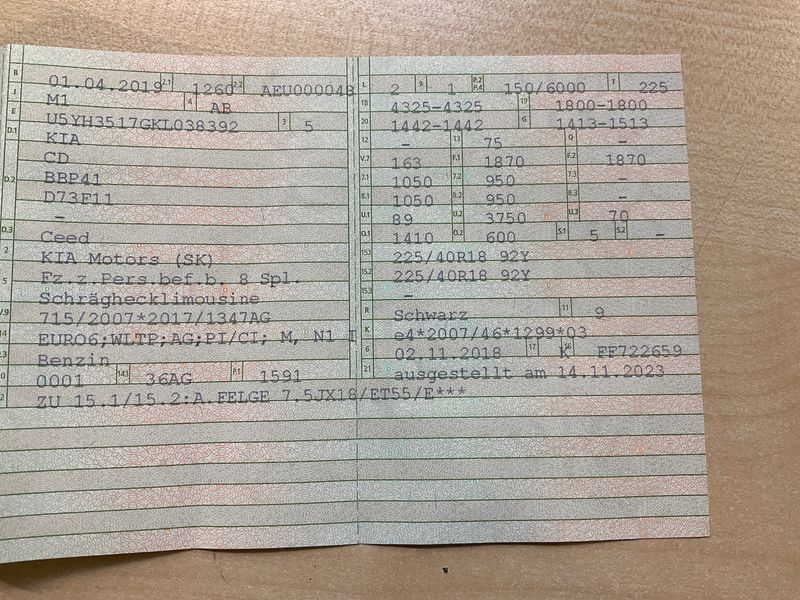 B 01.04.2019 2.1 1260 2.2 AEU000048
J M1 4 AB
E U5YH3517GKL038392 3 5
D.1 KIA
CD
D.2 BBP41
D73F11
–
D.3 Ceed
2 KIA Motors (SK)
5 Fz.z.Pers.bef.b. 8 Spl.
Schräghecklimousine
V.9 715/2007*2017/1347AG
14 EURO6;WLTP;AG;PI/CI; M, N1 I
P.3 Benzin
10 0001 14.1 36AG P.1 1591
22 ZU 15.1/15.2:A.FELGE 7.5JX18/ET55/E***
L 2 9 1 P.2 P.4 150/6000 T 225
18 4325-4325 19 1800-1800
20 1442-1442 G 1413-1513
12 – 13 75 Q –
V.7 163 F.1 1870 F.2 1870
7.1 1050 7.2 950 7.3 –
8.1 1050 8.2 950 8.3 –
U.1 89 U.2 3750 U.3 70
O.1 1410 O.2 600 S.1 5 S.2 –
15.1 225/40R18 92Y
15.2 225/40R18 92Y
15.3 –
R Schwarz 11 9
K e4*2007/46*1299*03
6 02.11.2018 17 K 16 FF722659
21 ausgestellt am 14.11.2023